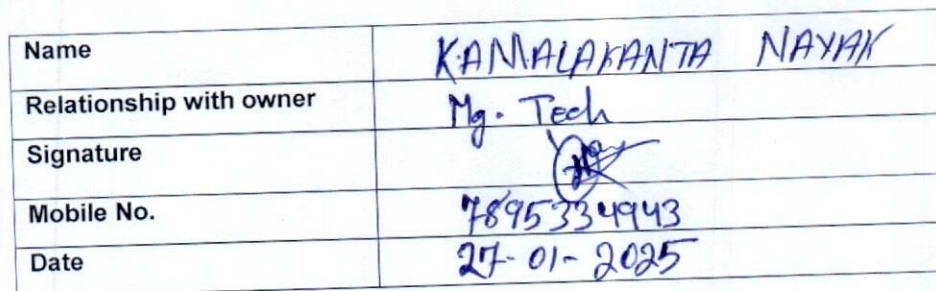 Name KAMALAKANTA NAYAK
Relationship with owner Mg. Tech
Signature
Mobile No. 7895334943
Date 27-01-2025